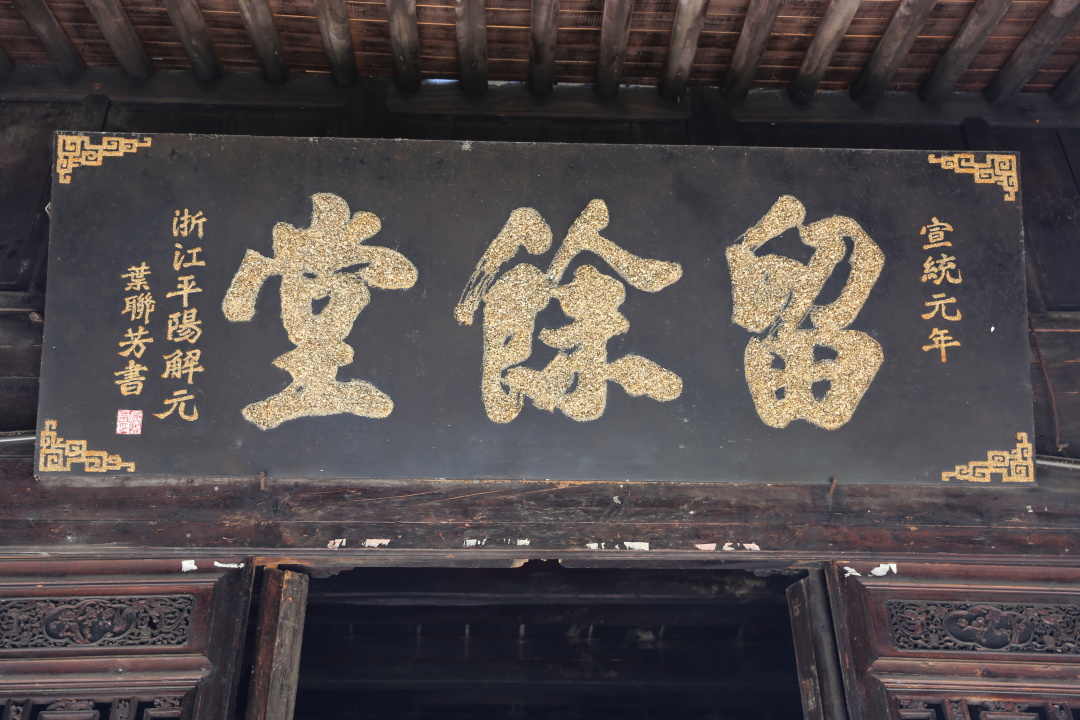 宣統元年
留餘堂
浙江平陽解元
葉聯芳書